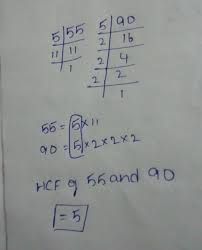 5 | 55
11 | 11
1
5 | 90
2 | 16
2 | 4
2 | 2
1
55 = 5 × 11
90 = 5 × 2 × 2 × 2
HCF of 55 and 90
= 5